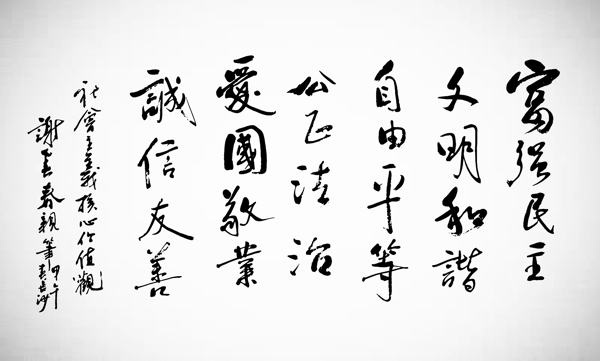 富强民主
文明和諧
自由平等
公正法治
愛國敬業
誠信友善
社會主義核心价值觀
謝 春親筆甲午